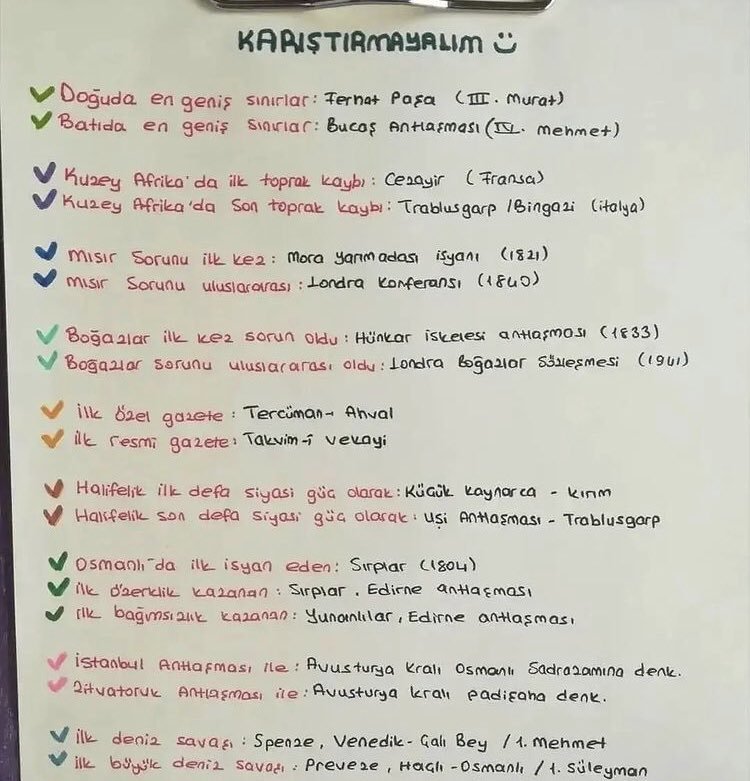 KARIŞTIRMAYALIM
Doğuda en geniş sınırlar: Ferhat Paşa (III. Murat)
Batıda en geniş sınırlar: Bucaş Antlaşması (IV. Mehmet)
Kuzey Afrika'da ilk toprak kaybı: Cezayir (Fransa)
Kuzey Afrika'da Son toprak kaybı: Trablusgarp / Bingazi (italya)
Mısır Sorunu ilk kez: Mora Yarımadası isyanı (1821)
Mısır Sorunu uluslararası: Londra Konferansı (1840)
Boğazlar ilk kez sorun oldu: Hünkar iskelesi antlaşması (1833)
Boğazlar Sorunu uluslararası oldu: Londra Boğazlar Sözleşmesi (1941)
ilk özel gazete: Tercüman-ı Ahval
ilk resmi gazete: Takvim-i vekayi
Halifelik ilk defa siyasi güç olarak: Küçük kaynarca - kırım
Halifelik son defa siyasi güç olarak: Uşi Antlaşması - Trablusgarp
Osmanlı'da ilk isyan eden: Sırplar (1804)
ilk özerklik kazanan: Sırplar, Edirne antlaşması
ilk bağımsızlık kazanan: Yunanlılar, Edirne antlaşması
istanbul Antlaşması ile: Avusturya kralı Osmanlı Sadrazamına denk.
Zitvatoruk Antlaşması ile: Avusturya kralı padişaha denk.
ilk deniz savaşı: Spenze, Venedik - Çalı Bey / 1. Mehmet
ilk büyük deniz savaşı: Preveze, Haçlı - Osmanlı / 1. Süleyman